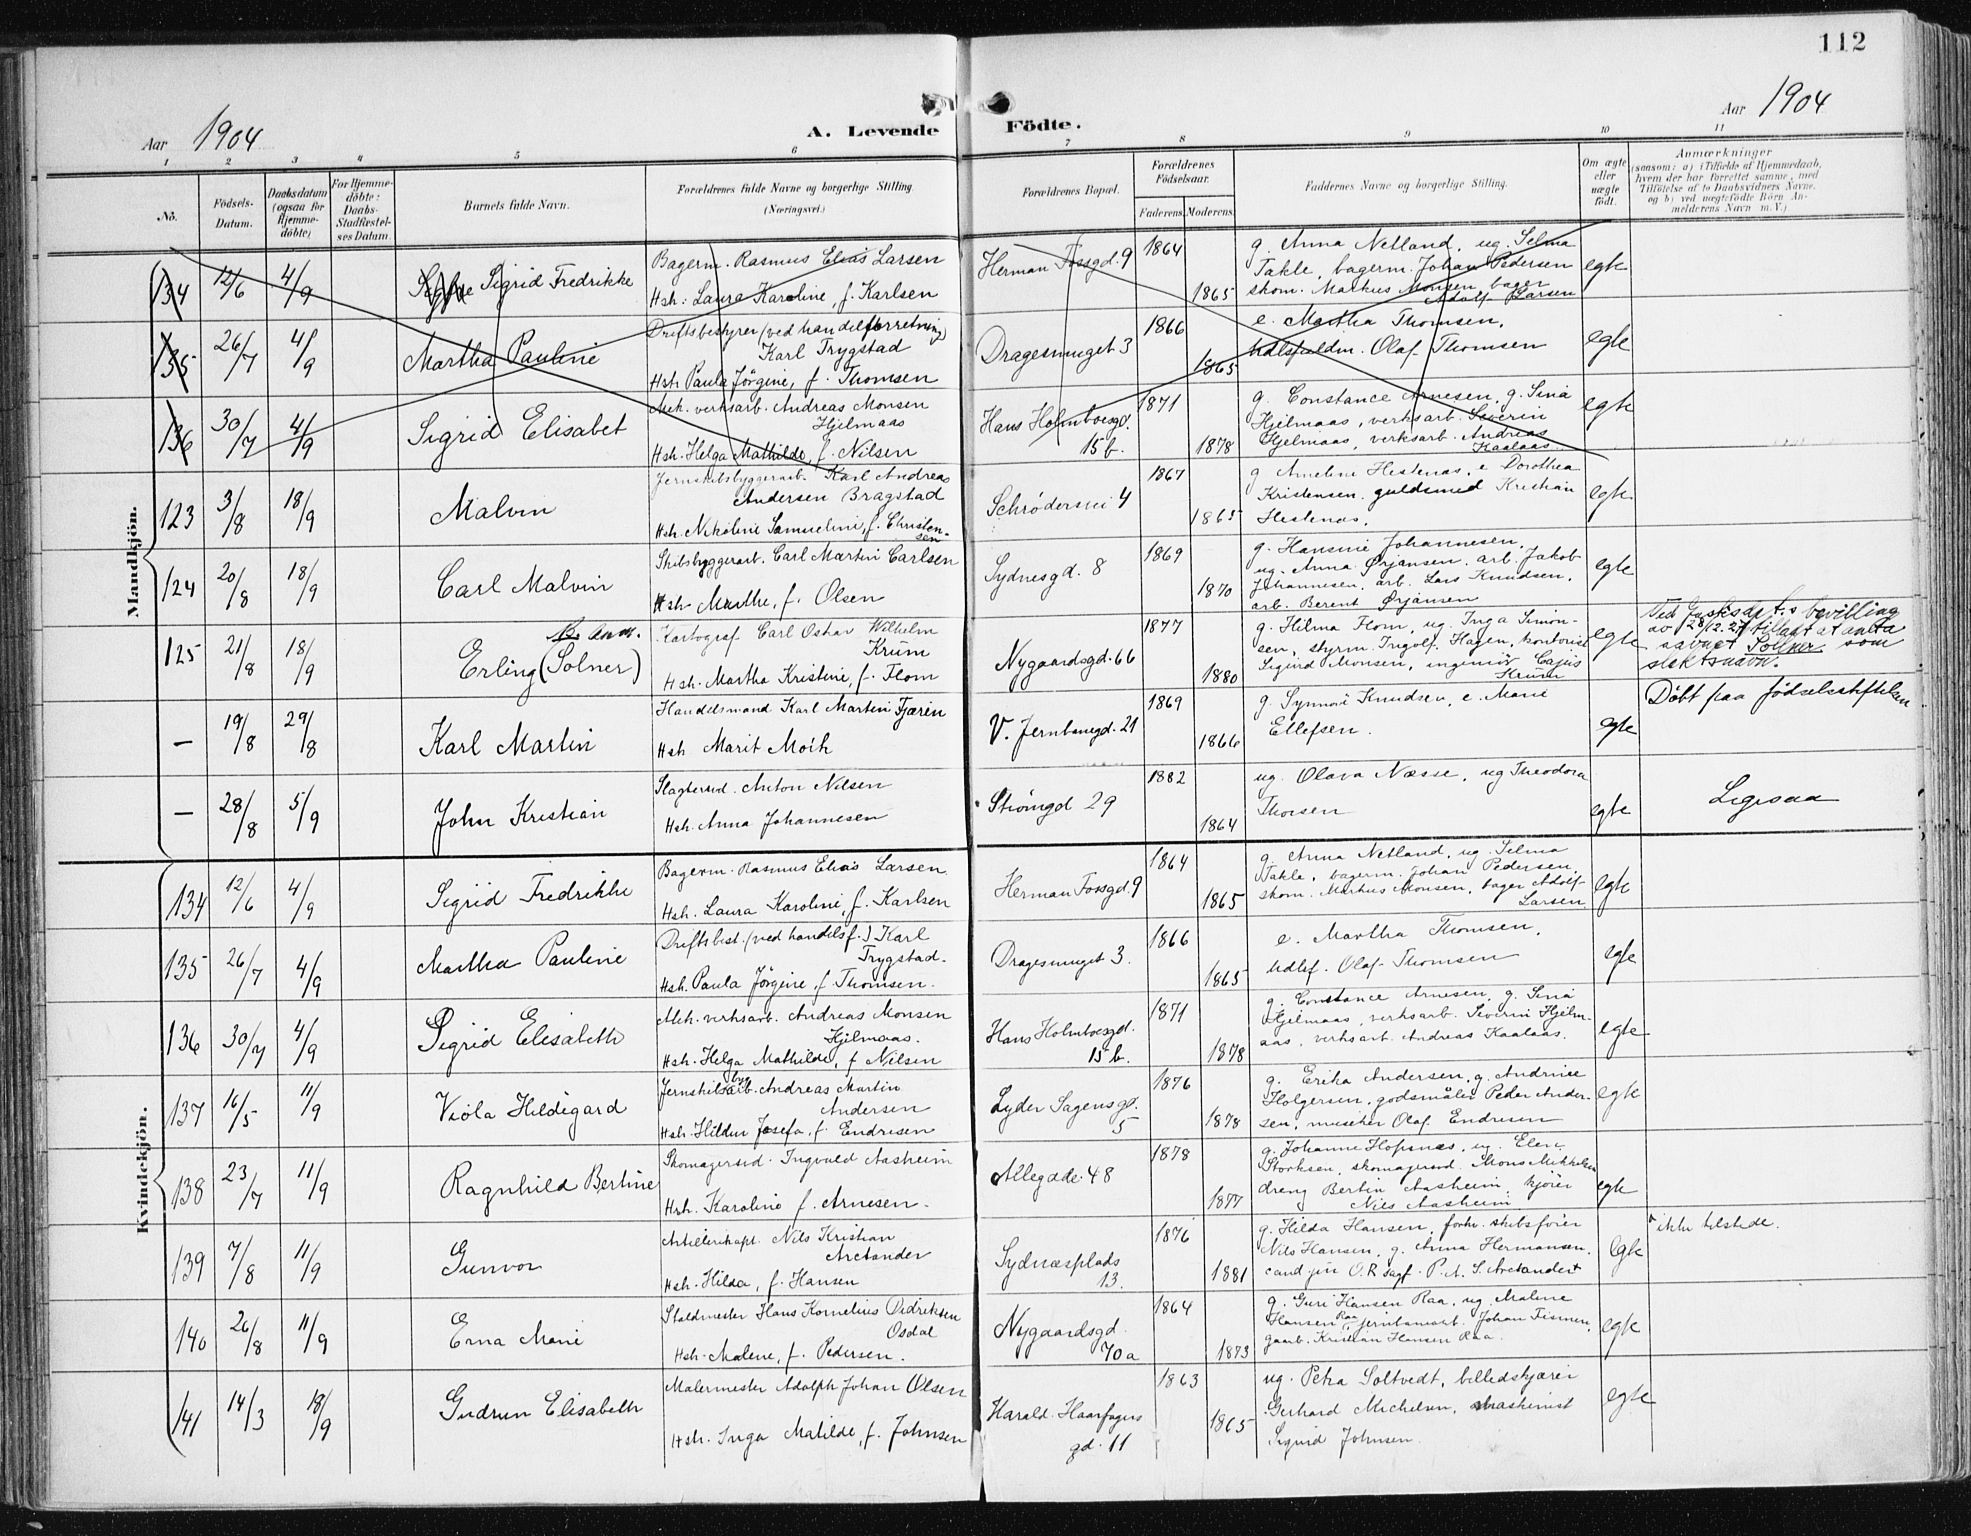 112
Aar 1904
A. Levende Födte.
Aar 1904
1 2 3 4 5 6 7 8 9 10 11
No.
Födsels-Datum.
Daabsdatum (ogsaa for Hjemme-döbte)
For Hjemme-döbte: Daabs-Stadfæstel-ses Datum.
Barnets fulde Navn.
Forældrenes fulde Navne og borgerlige Stilling. (Næringsvei.)
Forældrenes Bopæl.
Forældrenes Födselsaar.
Faderens. Moderens.
Faddernes Navne og borgerlige Stilling.
Om ægte eller uægte födt.
Anmærkninger
(saasom: a) i Tilfælde af Hjemmedaab, hvem der har forrettet samme, med Tilföielse af to Daabsvidners Navne. og b) ved uægtefödte Börn An-melderens Navn m. V.)
Mandkjön.
134 12/6 4/9 Sigrid Fredrikke
Bagerm. Rasmus Elias Larsen
Hstr: Laura Karoline, f. Karlsen
Herman Fossgd. 9 1864 1865
g. Anna Netland, ug. Selma
Takle, bagerm. Johan Pedersen
skom. Markus Monsen, bager
Adolf Larsen
egte
135 26/7 4/9 Martha Pauline
Driftsbestyrer (ved handelsforretning)
Karl Trygstad
Hstr Paula Jörgine, f. Thomsen
Dragesmuget 3 1866 1865
e. Martha Thomsen,
Olaf Thomsen
egte
136 30/7 4/9 Sigrid Elisabet
Mek. verksarb. Andreas Monsen
Hjelmaas
Hstr. Helga Mathilde, f. Nilsen
Hans Holmboesgd. 15 b. 1871 1878
g. Constance Arnesen, g. Sina
Hjelmaas, verksarb. Severin
Hjelmaas, verksarb. Andreas
Kaalaas
egte
123 3/8 18/9 Malvin
Jernskibsbyggerarb. Karl Andreas
Andersen Bragstad
Hstr. Nikoline Samueline, f. Christen-
sen
Schrödersmi 4 1867 1865
g. Ameline Hestenas, e Dorothea
Kristensen, guldsmed Kristian
Hestenas.
egte
124 20/8 18/9 Carl Malvin
Skibsbyggerarb. Carl Martin Carlsen
Hstr Marthe, f. Olsen
Sydnesgd. 8 1869 1870
g. Hansine Johannesen,
ug. Anna Ørjansen, arb. Jakob
Johannesen, arb. Lars Knudsen,
arb. Berent Ørjansen
egte
125 21/8 18/9 Erling (Solner)
Kartograf Carl Oskar Wilhelm
Krum
Hstr. Martha Kristine, f. Flom
Nygaardsgd. 66 1877 1880
g. Hilma Flom, ug. Inga Simon-
sen, styrm. Ingolf Hagen, kontorist
Sigurd Monsen, ingeniör Cajus
Krum
egte
Ved Justisdept.s bevilling
av 28/12.27 tillatt at anta
navnet Sollner som
slektsnavn.
— 19/8 29/8 Karl Martin
Handelsmand Karl Martin Fjæren
Hstr Marit Moik
V. Jernbanegd. 21 1869 1866
g. Synnöve Knudsen, e. Marie
Ellefsen.
egte
Döbt paa födselsstiftelsen
— 28/8 5/9 John Kristian
Slagtersvd. Anton Nilsen
Hstr. Anna Johannesen
Strömgd 29 1882 1864
ug. Olava Næsse, ug Theodora
Thorsen
egte
Ligesaa
Kvindekjön.
134 12/6 4/9 Sigrid Fredrikke
Bagerm. Rasmus Elias Larsen
Hstr. Laura Karoline, f. Karlsen
Herman Fossgd. 9 1864 1865
g. Anna Netland, ug. Selma
Takle, bagerm. Johan Pedersen,
skom. Markus Monsen, bager Adolf
Larsen
egte
135 26/7 4/9 Martha Pauline
Driftsbest. (ved handelsf.) Karl
Trygstad.
Hstr. Paula Jörgine, f. Thomsen.
Dragesmuget 3. 1866 1865
e. Martha Thomsen,
Udlsf. Olaf Thomsen
egte
136 30/7 4/9 Sigrid Elisabeth
Mek. verksarb. Andreas Monsen
Hjelmaas.
Hstr. Helga Mathilde, f Nilsen
Hans Holmboesgd. 15 b. 1871 1878
g. Constance Arnesen, g. Sina
Hjelmaas, verksarb. Severin Hjelm-
aas, verksarb. Andreas Kaalaas.
egte
137 16/5 11/9 Viola Hildegard
Jernskibsbyg.arb. Andreas Martin
Andersen
Hstr. Hildur Josefa, f. Endresen
Lyder Sagensgd. 5 1876 1878
g. Erika Andersen, g. Andrine
Holgersen, godsmåler Peder Ander-
sen, musiker Olaf Endresen
egte
138 23/7 11/9 Ragnhild Bertine
Skomagersvd. Ingvald Aasheim
Hstr. Karoline f. Arnesen.
Allegade 48 1878 1877
g. Johanne Hopsnæs, ug. Elen
Storksen, skomagersvd. Mons Mikkelsen
dreng Bertin Aasheim, kjörer
Nils Aasheim
egte
139 7/8 11/9 Gunvor
Artillerikapt. Nils Kristian
Arctander
Hstr. Hilda, f. Hansen
Sydnæsplads 13. 1876 1881
g. Hilda Hansen, forhv. skibsförer
Nils Hansen, g. Anna Hermansen,
cand jur O.R sagf. P. A. S. Arctander
egte
ikke tilstede.
140 26/8 11/9 Erna Marie
Staldmester Hans Kornelius Didriksen
Osdal
Hstr. Malene, f. Pedersen.
Nygaardsgd. 70a 1864 1873
g. Guri Hansen Raa, ug. Malene
Hansen Raa, jernbanearb. Johan Tismen,
gaarb. Kristian Hansen Raa.
egte
141 14/3 18/9 Gudrun Elisabeth
Malermester Adolph Johan Olsen
Hstr. Inga Matilde, f. Johnsen
Harald Haarfagers gd. 11 1863 1865
ug. Petra Soltvedt, billedskjærer
Gerhard Michelsen, maskinist
Sigurd Johnsen.
egte